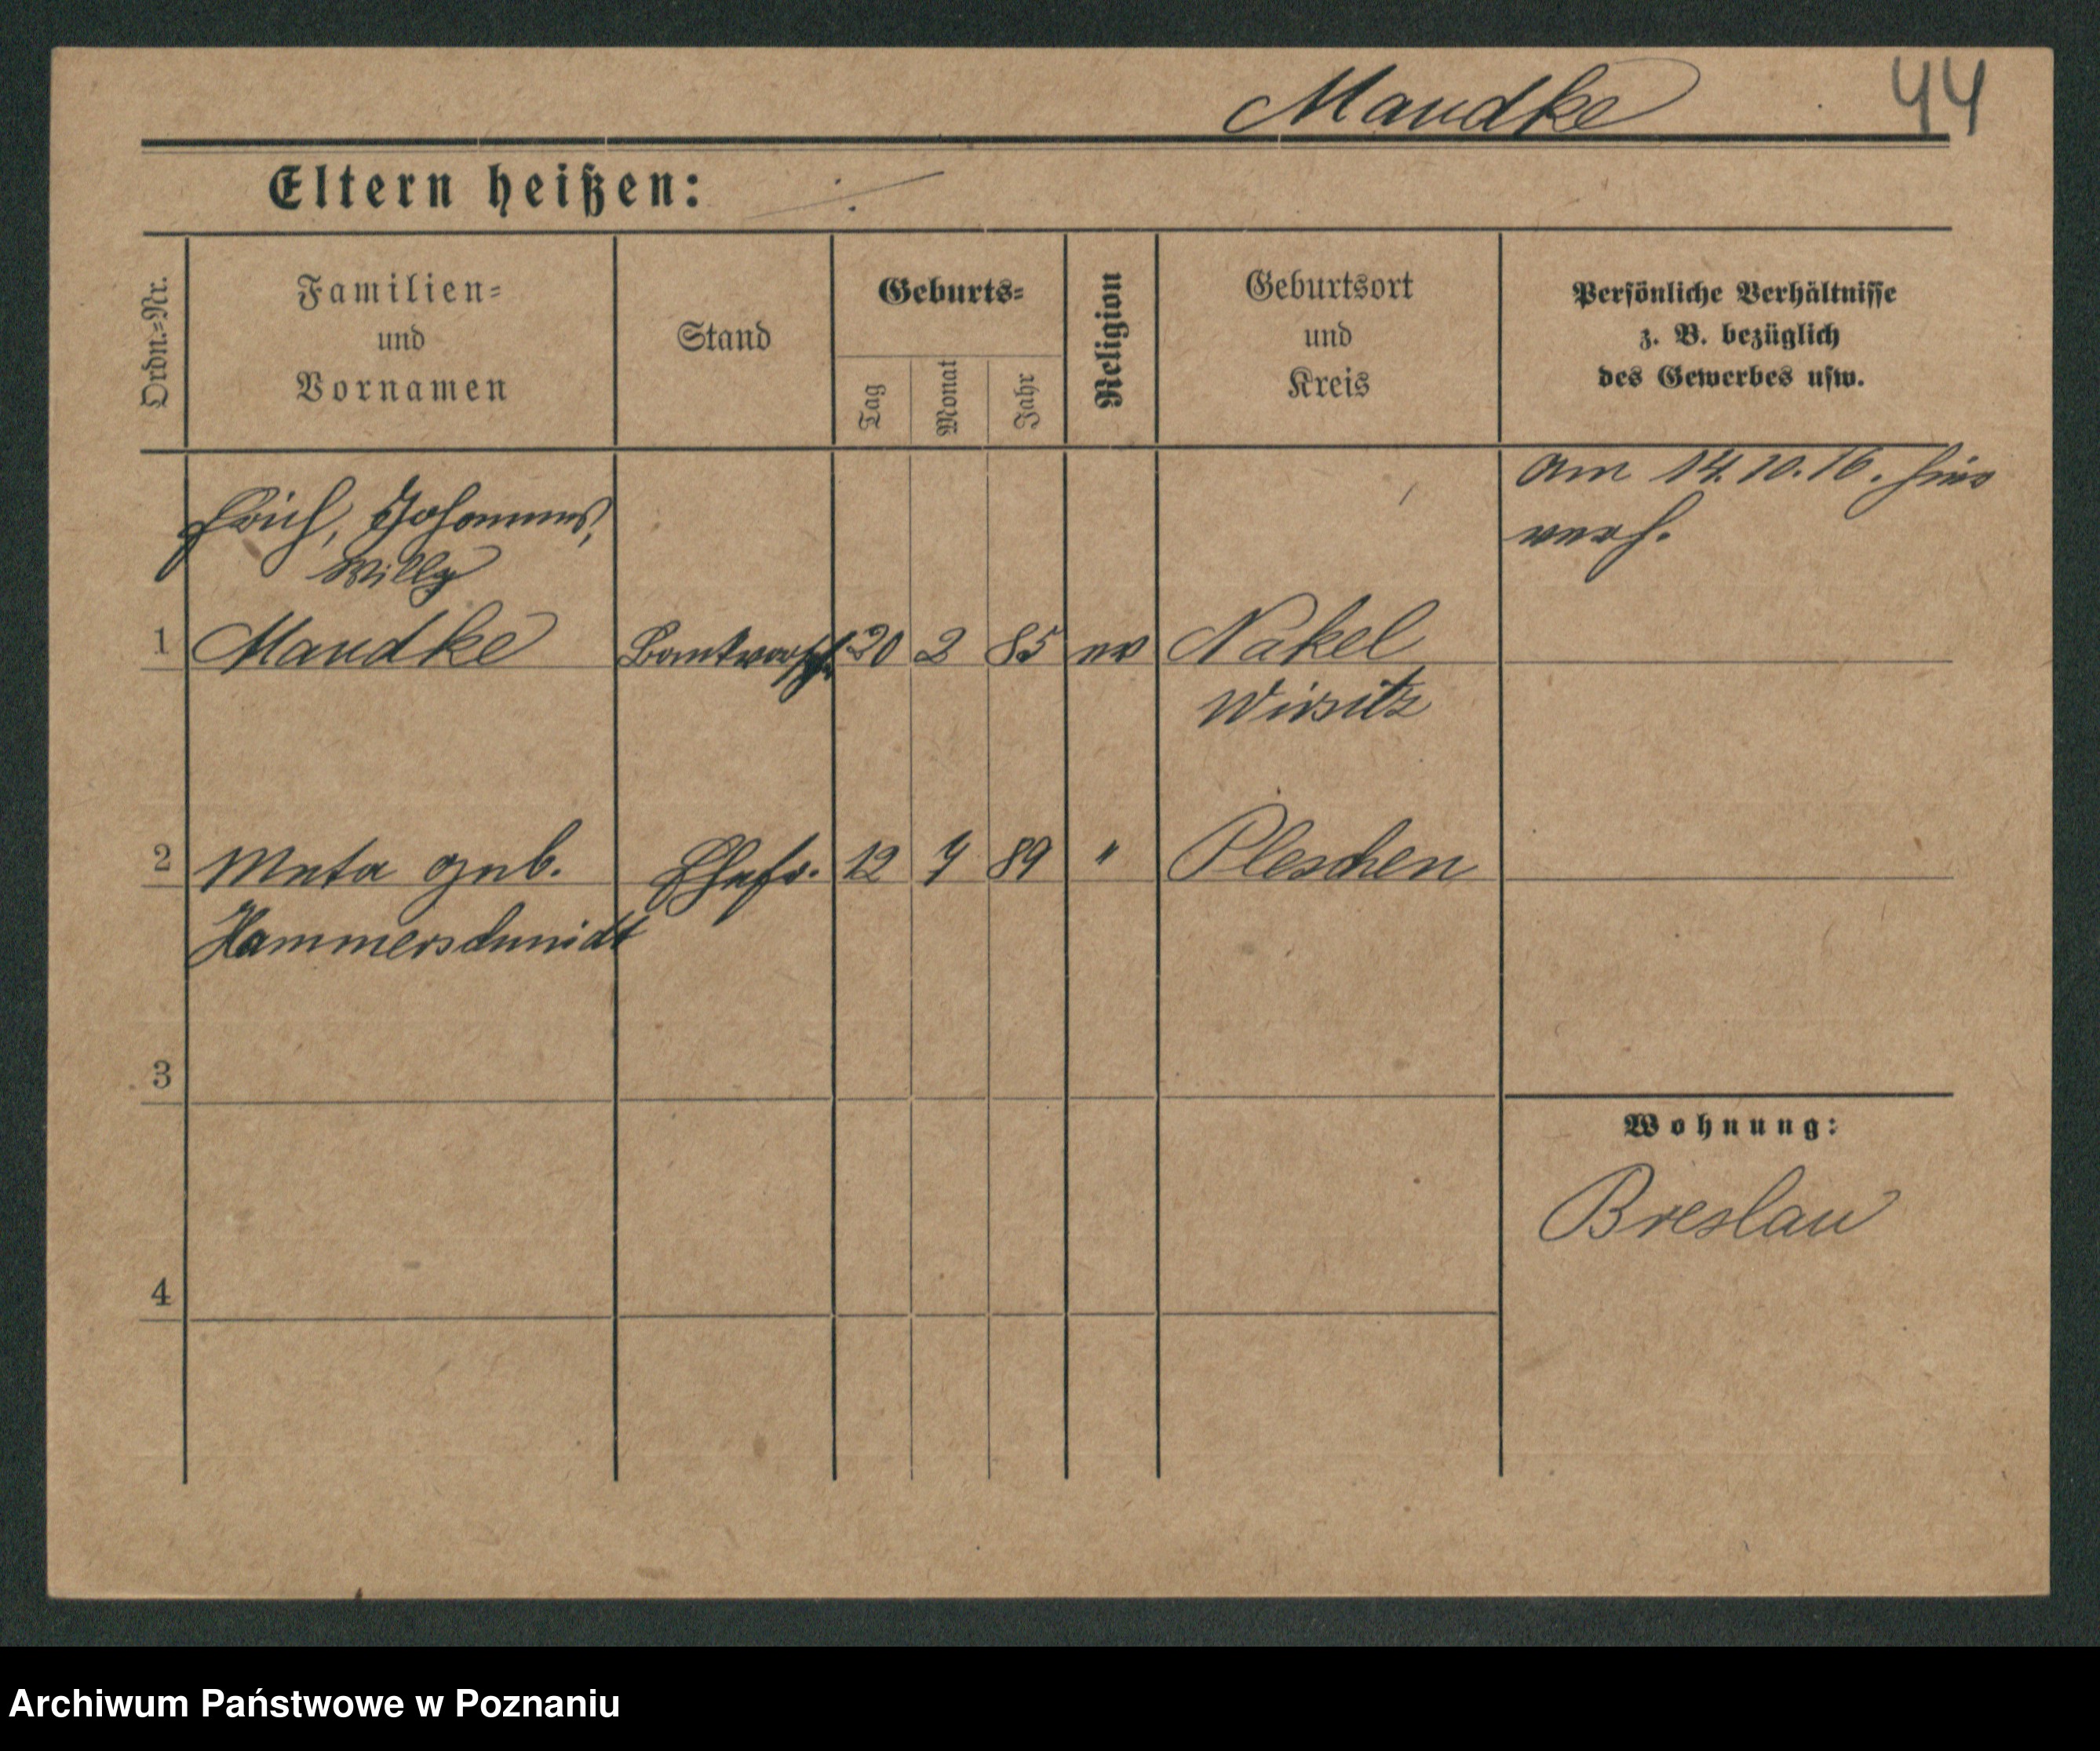 Mandke 44
Eltern heißen: ·/·
Ordn.-Nr.
Familien-
und
Vornamen
Stand
Geburts-
Tag
Monat
Jahr
Religion
Geburtsort
und
Kreis
Persönliche Verhältnisse
z. B. bezüglich
des Gewerbes usw.
am 14.10.16. hier
verh.
Erich, Johannes,
Willy
1 Mandke 20 2 85 ev Nakel
Wirsitz
2 Meta geb. Ehefr. 12 4 89 " Pleschen
Hammerschmidt
3
Wohnung:
Breslau
4
Archiwum Państwowe w Poznaniu